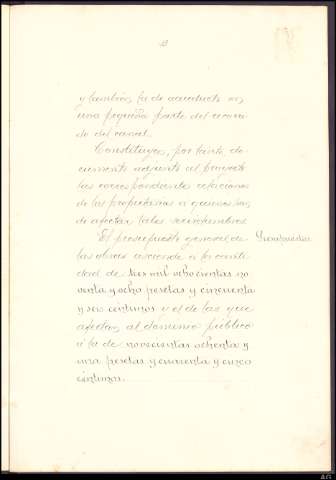 y tambien la de acueducto en
una pequeña parte del recorri-
do del canal.
Constituyen, por tanto do-
cumento adjunto al proyecto
las correspondientes relaciones
de los propietarios a quienes han
de afectar tales servidumbres
El presupuesto general de
Presupuestos
las obras asciende a la canti-
dad de tres mil ochocientas no
venta y ocho pesetas y cincuenta
y seis centimos y el de las que
afectan al dominio público
á la de novecientas ochenta y
una pesetas y cuarenta y cinco
centimos.